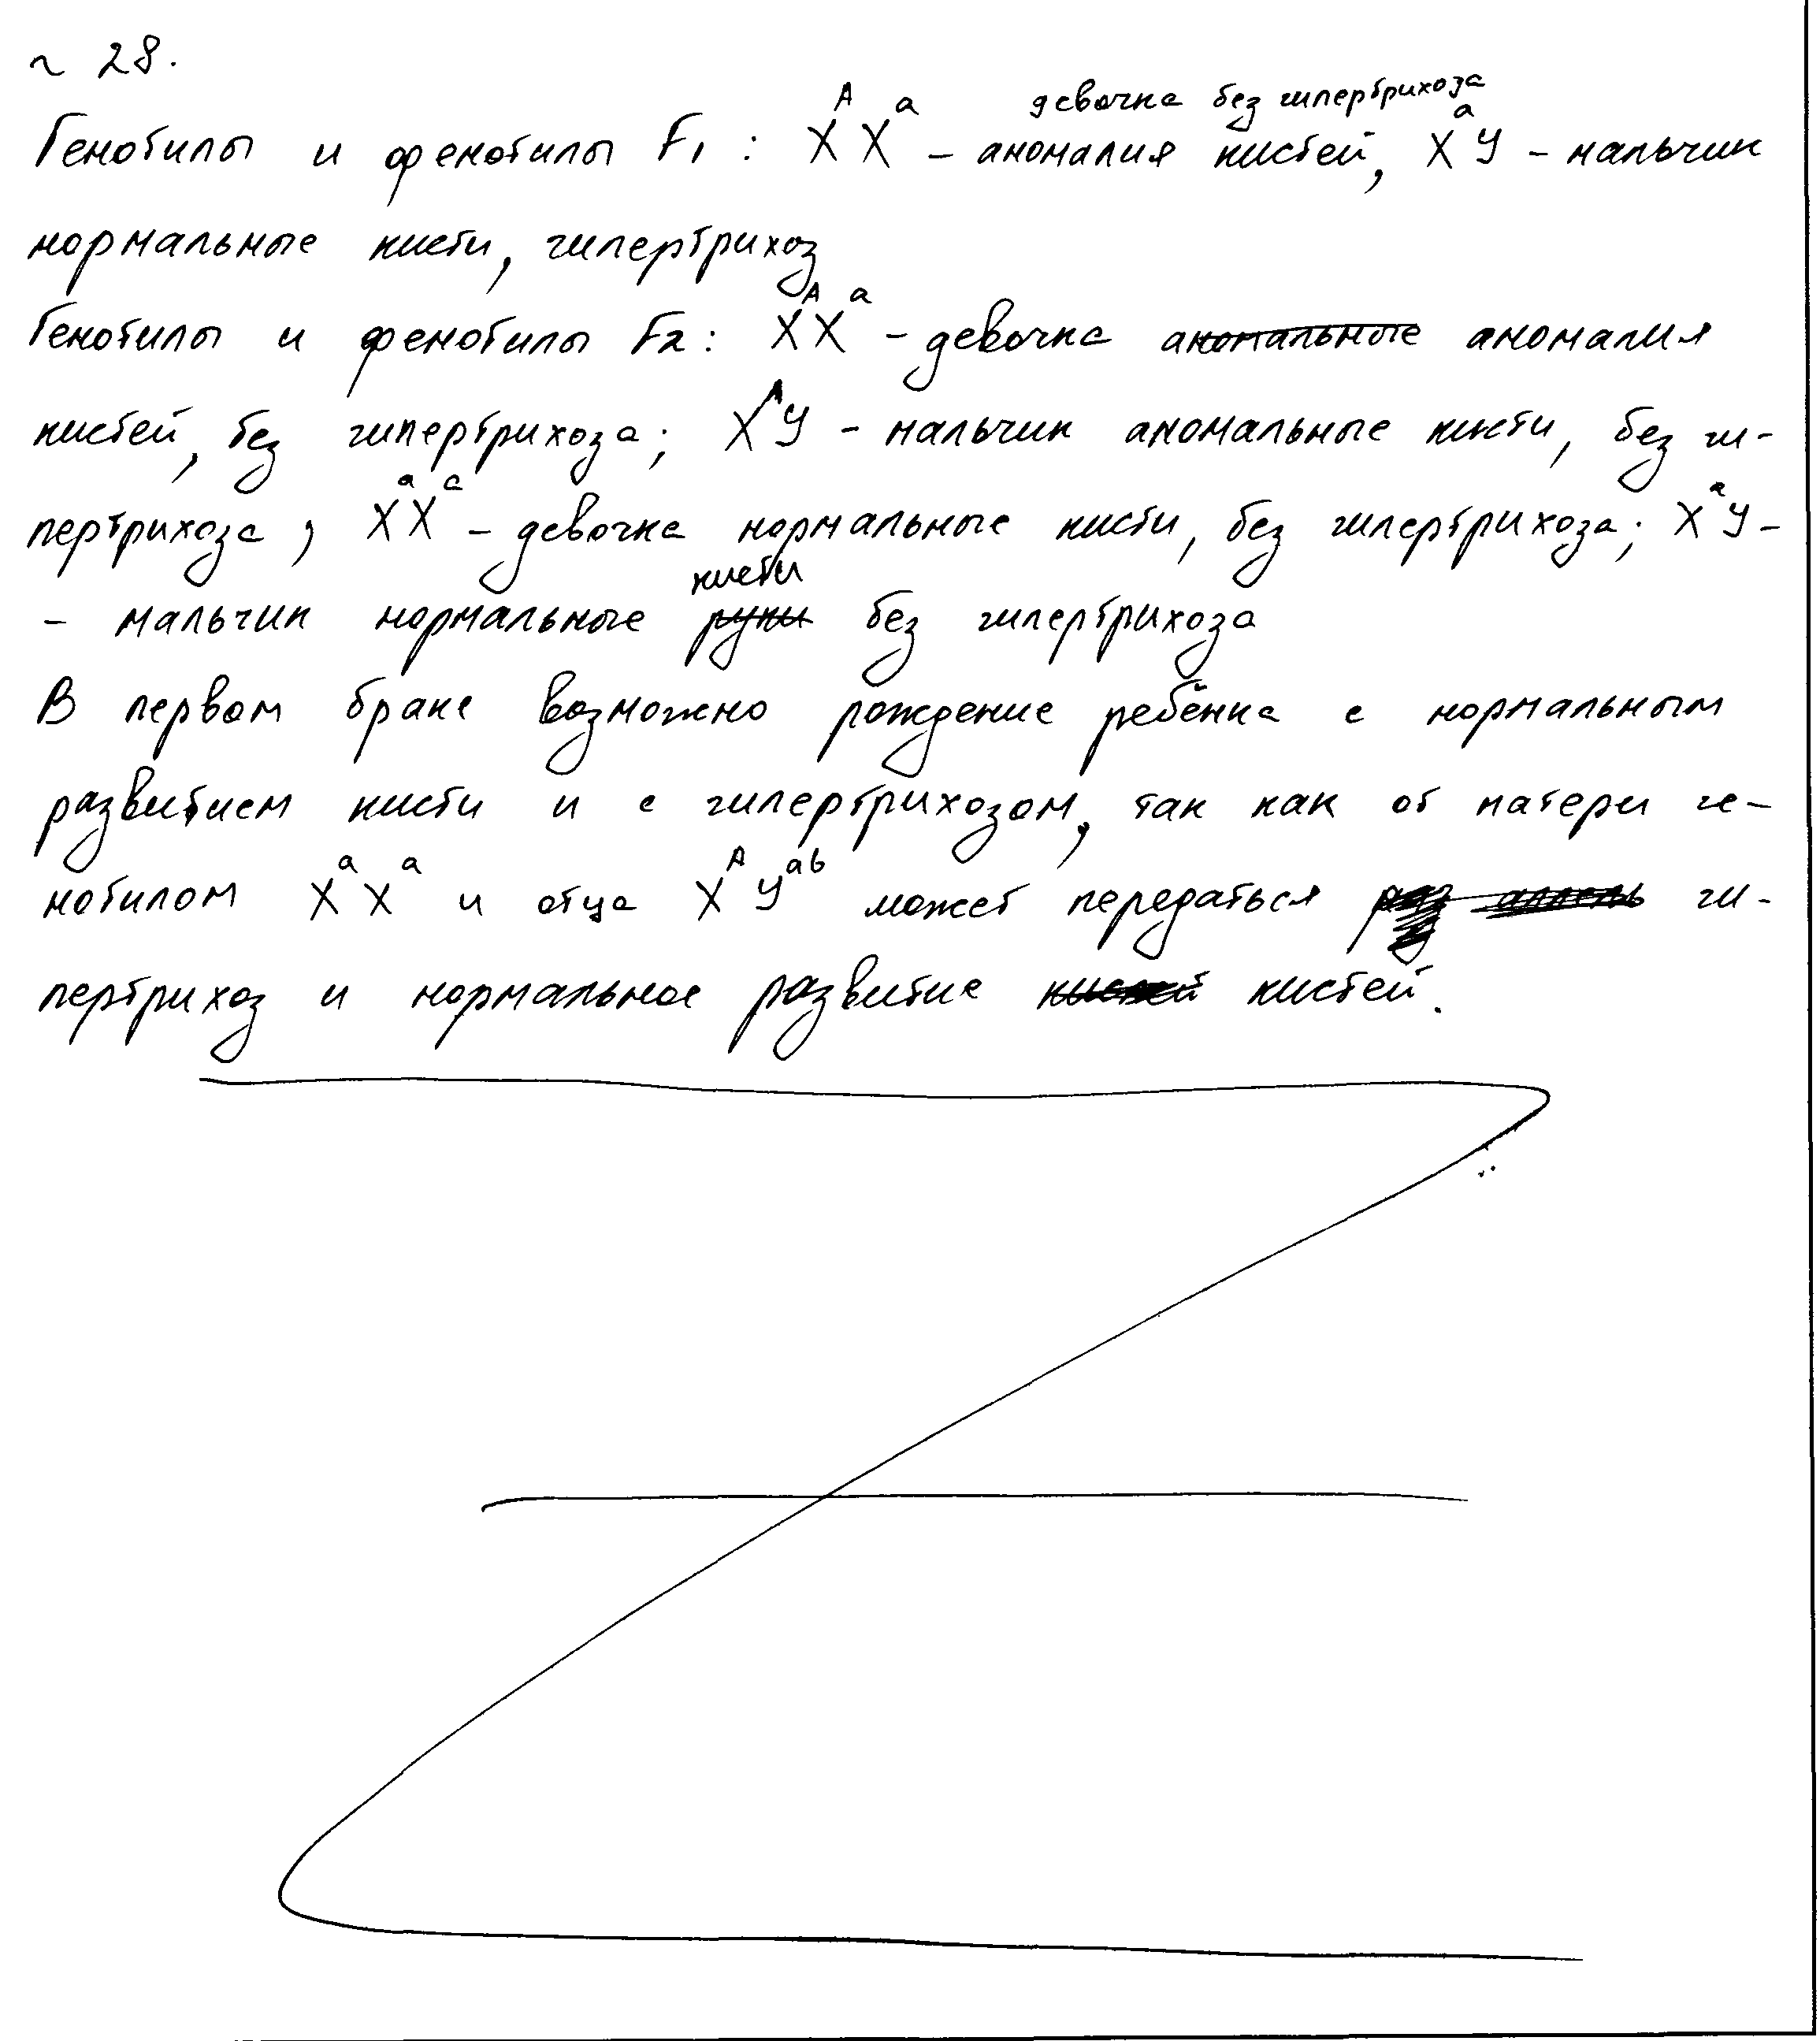 ~ 28.
девочка без гипертрихоза
Генотипы и фенотипы F1 : X^A X^a – аномалия кистей, X^a У – мальчик
нормальные кисти, гипертрихоз
Генотипы и фенотипы F2: X^A X^a – девочка аномальные аномалия
кистей, без гипертрихоза; X^A У – мальчик аномальные кисти, без ги-
пертрихоза; X^a X^a – девочка нормальные кисти, без гипертрихоза; X^a У –
кисти
– мальчик нормальные руки без гипертрихоза
В первом браке возможно рождение ребёнка с нормальным
развитием кисти и с гипертрихозом, так как от матери ге-
нотипом X^a X^a и отца X^A У^ab может передаться аллель ги-
пертрихоз и нормальное развитие кистей.